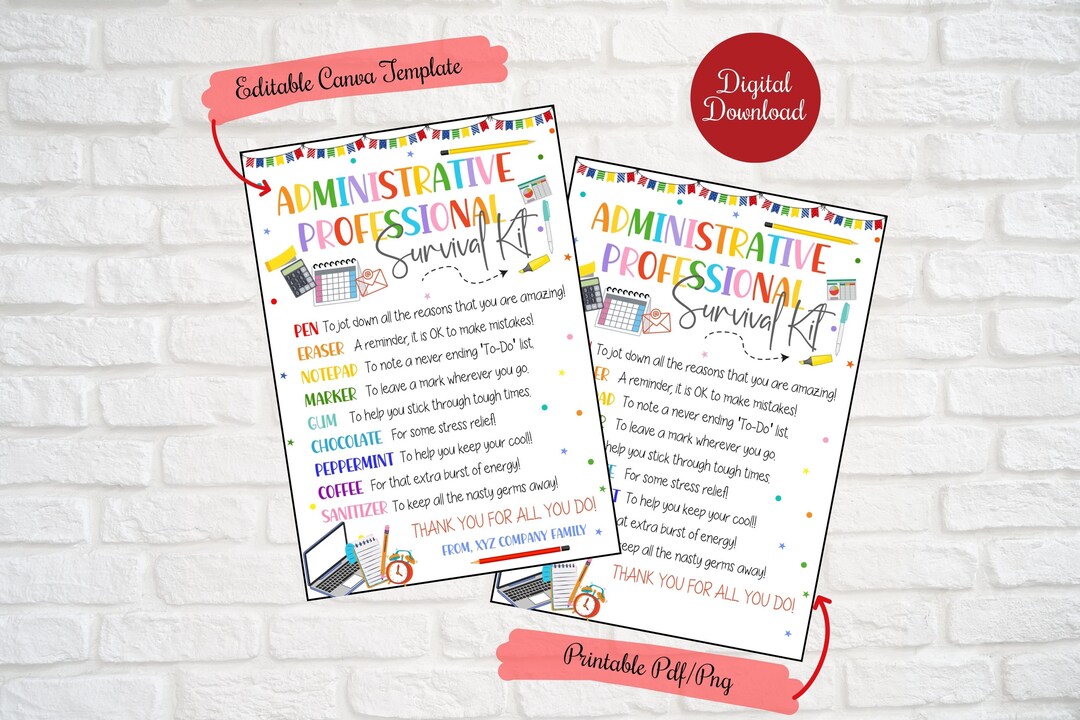 Editable Canva Template
Digital
Download
ADMINISTRATIVE
PROFESSIONAL
Survival Kit
PEN To jot down all the reasons that you are amazing!
ERASER A reminder, it is OK to make mistakes!
NOTEPAD To note a never ending 'To-Do' list.
MARKER To leave a mark wherever you go.
GUM To help you stick through tough times.
CHOCOLATE For some stress relief!
PEPPERMINT To help you keep your cool!!
COFFEE For that extra burst of energy!
SANITIZER To keep all the nasty germs away!
THANK YOU FOR ALL YOU DO!
FROM, XYZ COMPANY FAMILY
ADMINISTRATIVE
PROFESSIONAL
Survival Kit
To jot down all the reasons that you are amazing!
ER A reminder, it is OK to make mistakes!
AD To note a never ending 'To-Do' list.
To leave a mark wherever you go.
help you stick through tough times.
E For some stress relief!
T To help you keep your cool!!
at extra burst of energy!
eep all the nasty germs away!
THANK YOU FOR ALL YOU DO!
Printable Pdf/Png